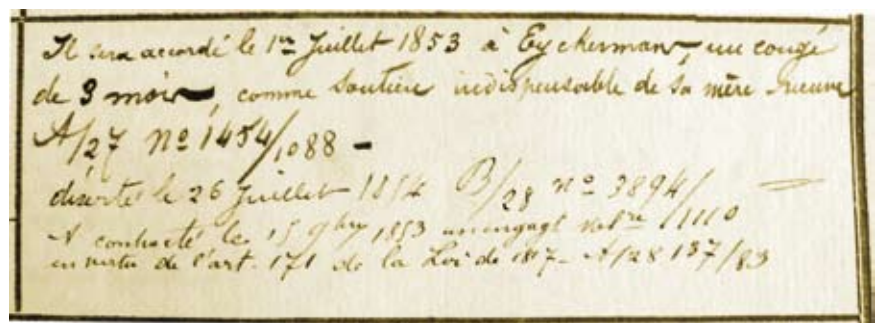 Il sera accordé le 1er Juillet 1853 à Eyckerman, un congé
de 3 mois, comme soutien indispensable de sa mère veuve
A/27 nº 1454/1088 -
déserté le 26 Juillet 1854 B/28 nº 3894/
A contracté le 15 9bre 1853 un engagt volre /1110
en vertu de l'art. 171 de la Loi de 1817 - A/28 137/83